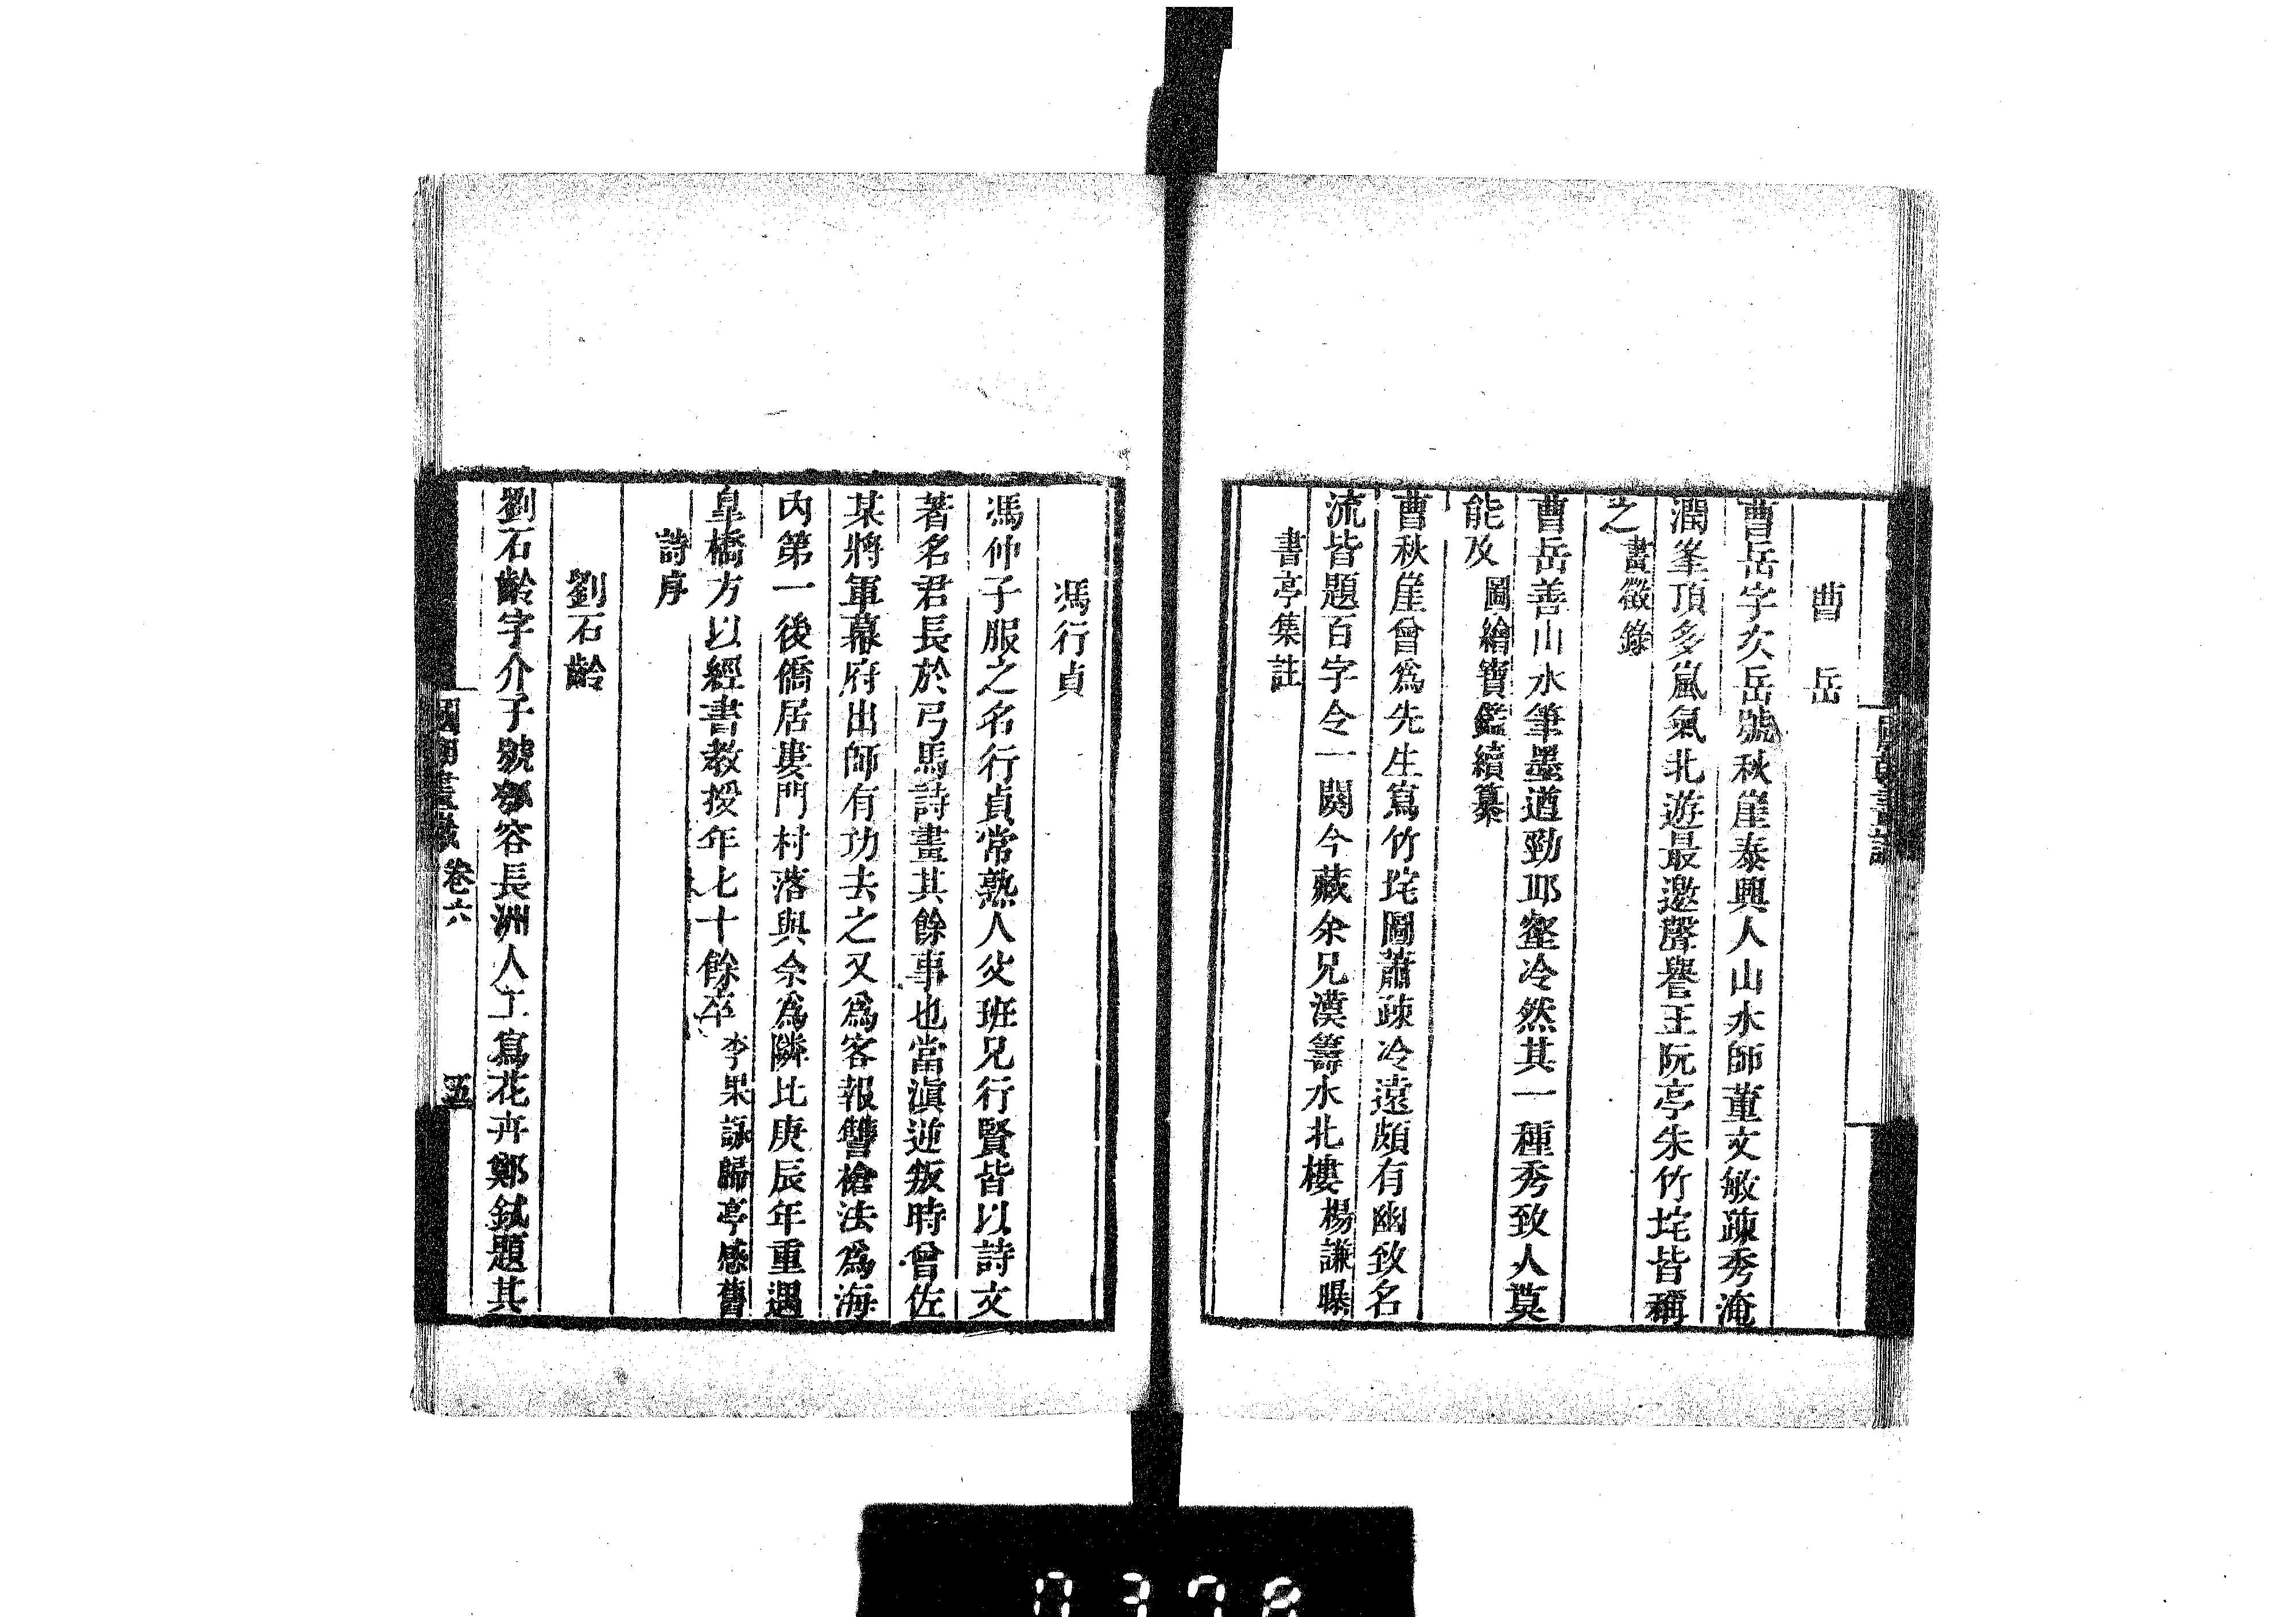 曹岳
曹岳字次岳號秋崖泰興人山水師董文敏疎秀淹
潤筆頂多嵐氣北遊最邀聲譽王阮亭朱竹垞皆稱
之畫徵錄
曹岳善山水筆墨遒勁邱壑冷然其一種秀致人莫
能及圖繪寶鑑續纂
曹秋崖曾爲先生寫竹垞圖蕭疎冷遠頗有幽致名
流皆題百字令一闋今藏余兄漢籌水北樓楊謙曝
書亭集註
馮行貞
馮仲子服之名行貞常熟人父班兄行賢皆以詩文
著名君長於弓馬詩畫其餘事也當滇逆叛時曾佐
某將軍幕府出師有功去之又爲客報讐槍法爲海
內第一後僑居婁門村落與余爲隣比庚辰年重遇
皐橋方以經書教授年七十餘卒李果詠歸亭感舊
詩序
劉石齡
劉石齡字介于號容長洲人工寫花卉鄭鉽題其
卷六
五